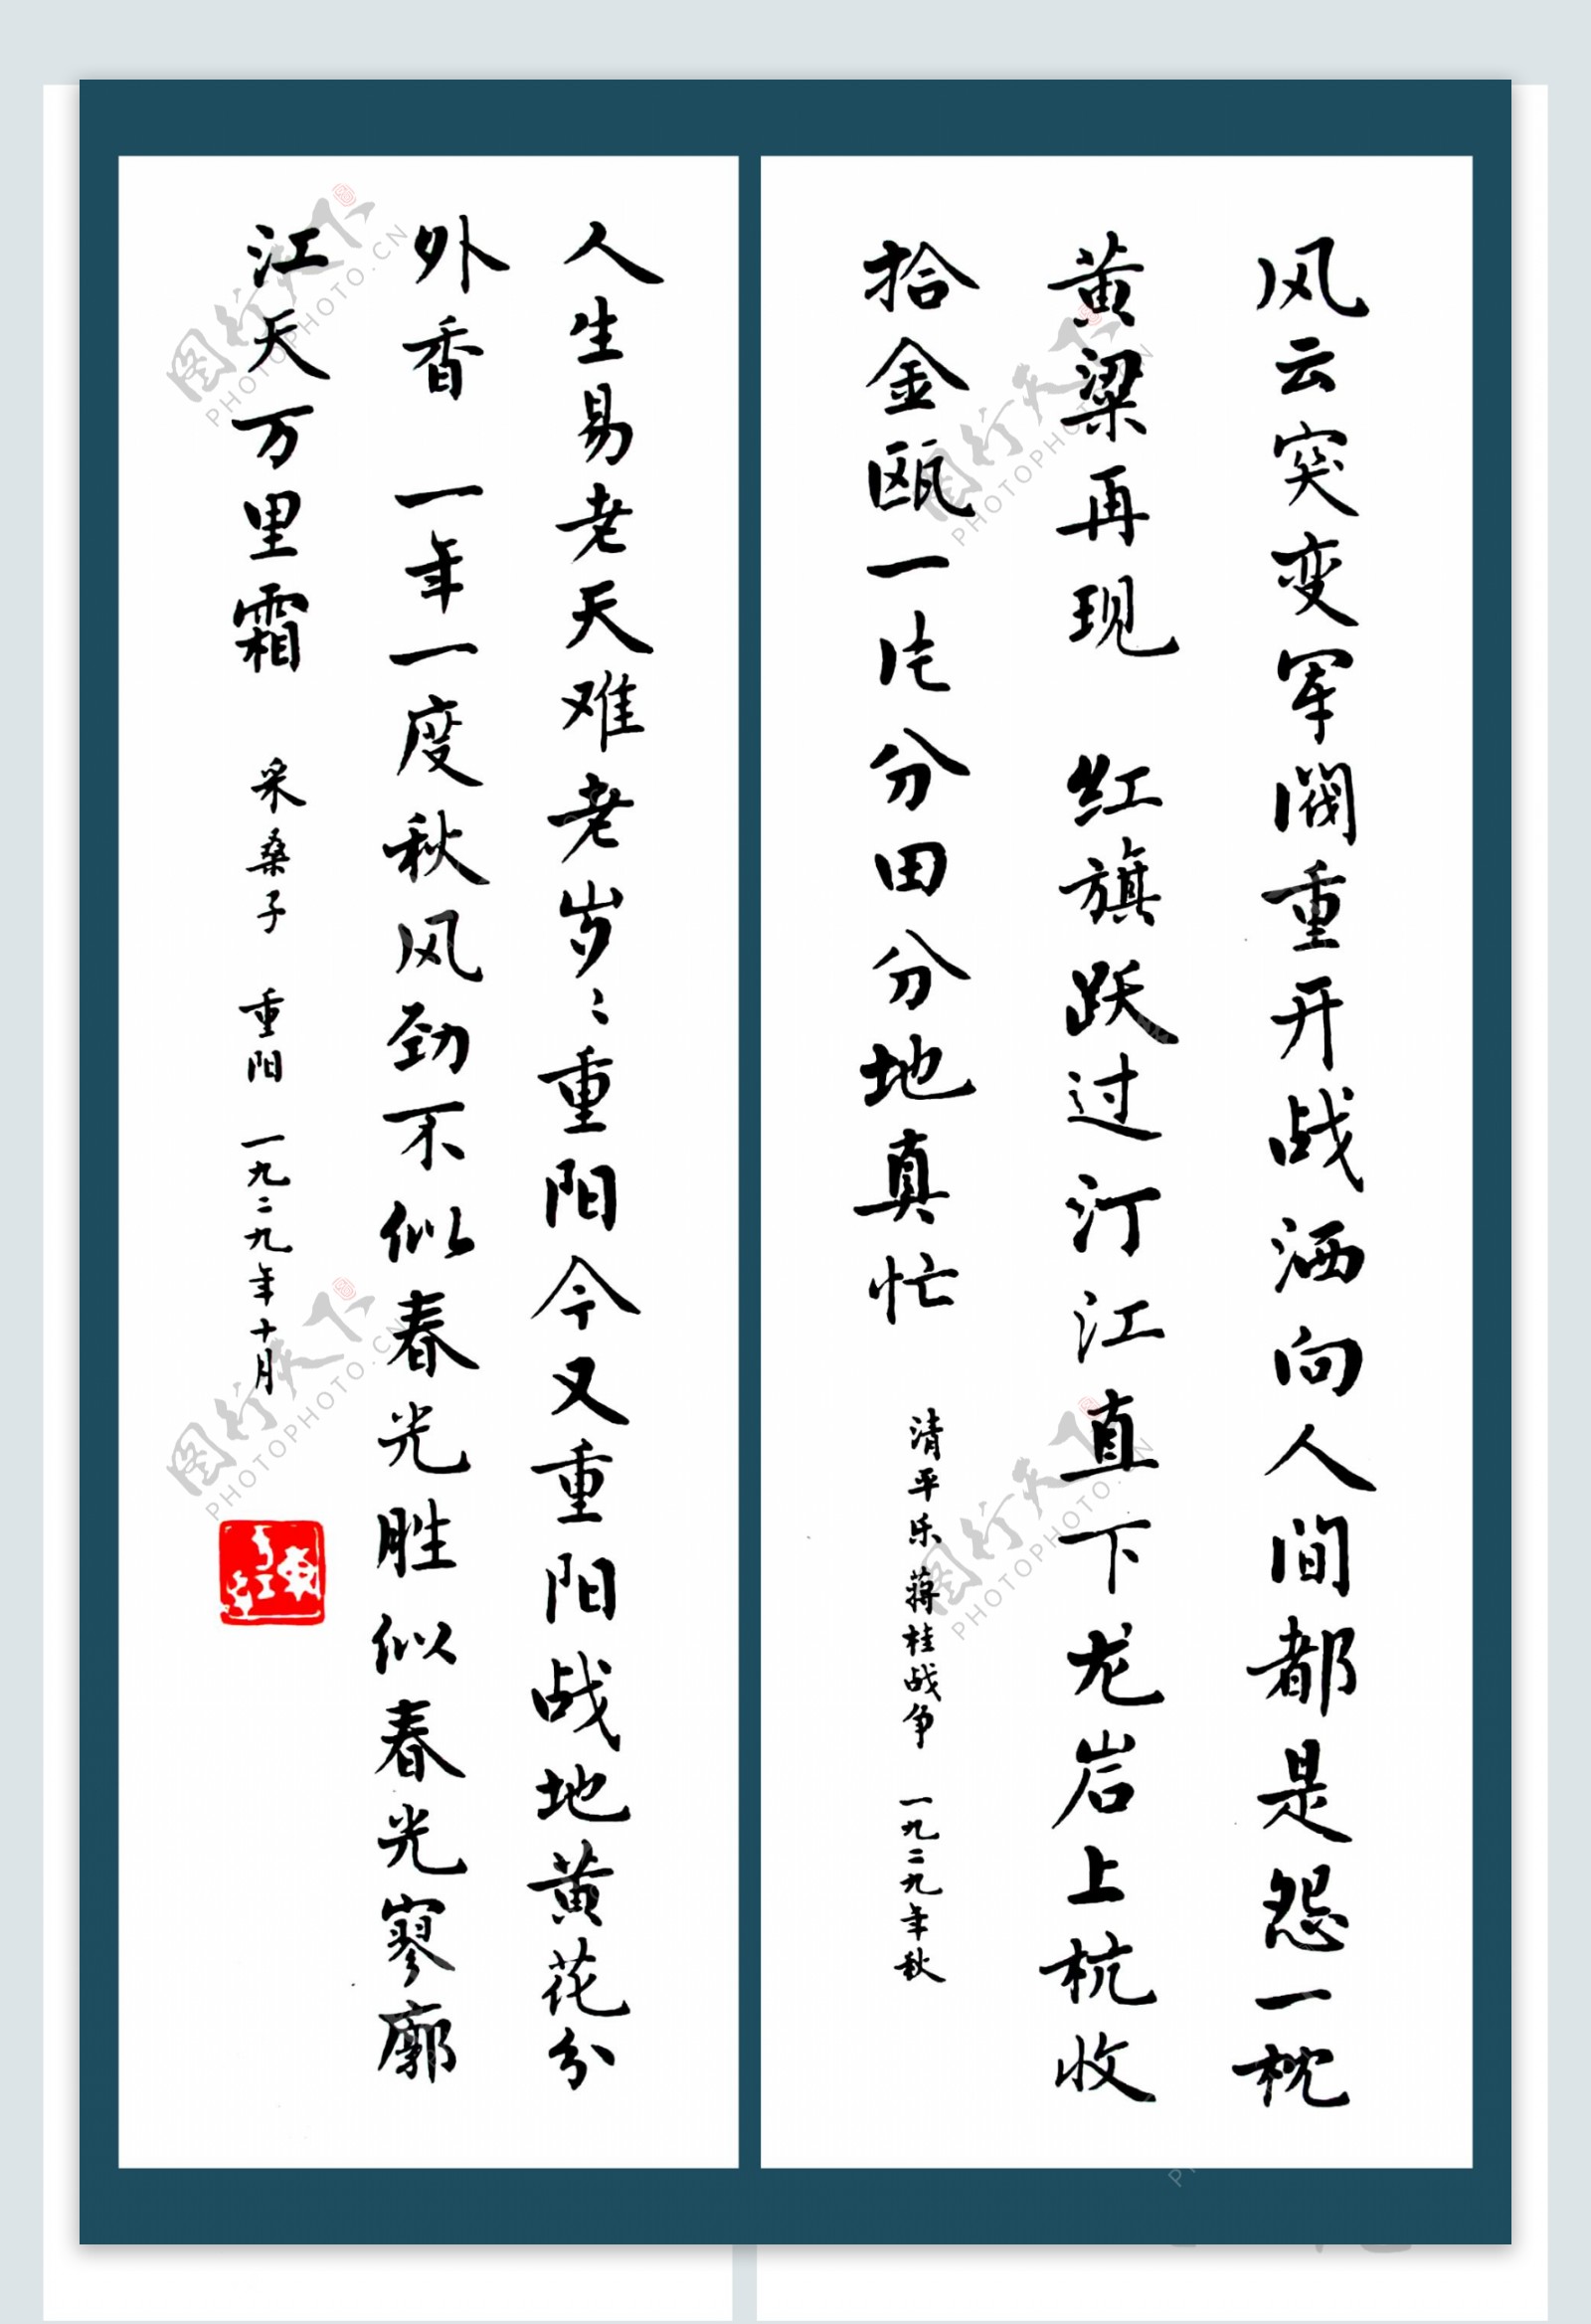 风云突变军阀重开战洒向人间都是怨一枕
黄粱再现 红旗跃过汀江直下龙岩上杭收
拾金瓯一片分田分地真忙
清平乐 蒋桂战争 一九二九年秋
人生易老天难老岁〻重阳今又重阳战地黄花分
外香 一年一度秋风劲不似春光胜似春光寥廓
江天万里霜 采桑子 重阳 一九二九年十月
PHOTOPHOTO.CN
PHOTOPHOTO.CN
PHOTOPHOTO.CN
PHOTOPHOTO.CN